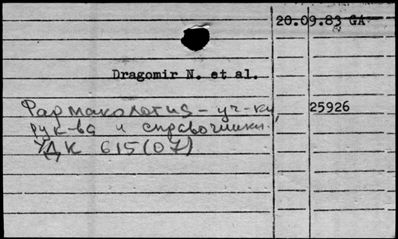 20.09.83 GA
Dragomir N. et al.
Фармакология – уч-ки, 25926
рук-ва и справочники.
УДК 615(07)